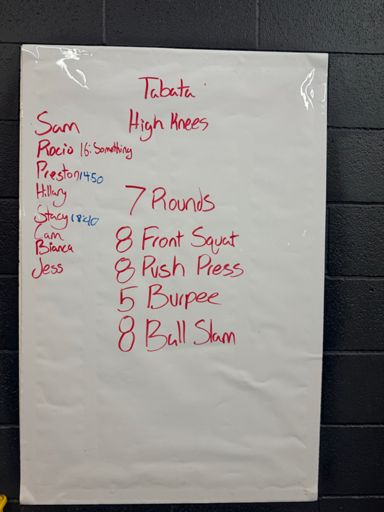 Tabata
High Knees
Sam
Rocio 16:Something
Preston 1450
Hillary
Stacy 18:40
Cam
Bianca
Jess
7 Rounds
8 Front Squat
8 Push Press
5 Burpee
8 Ball Slam